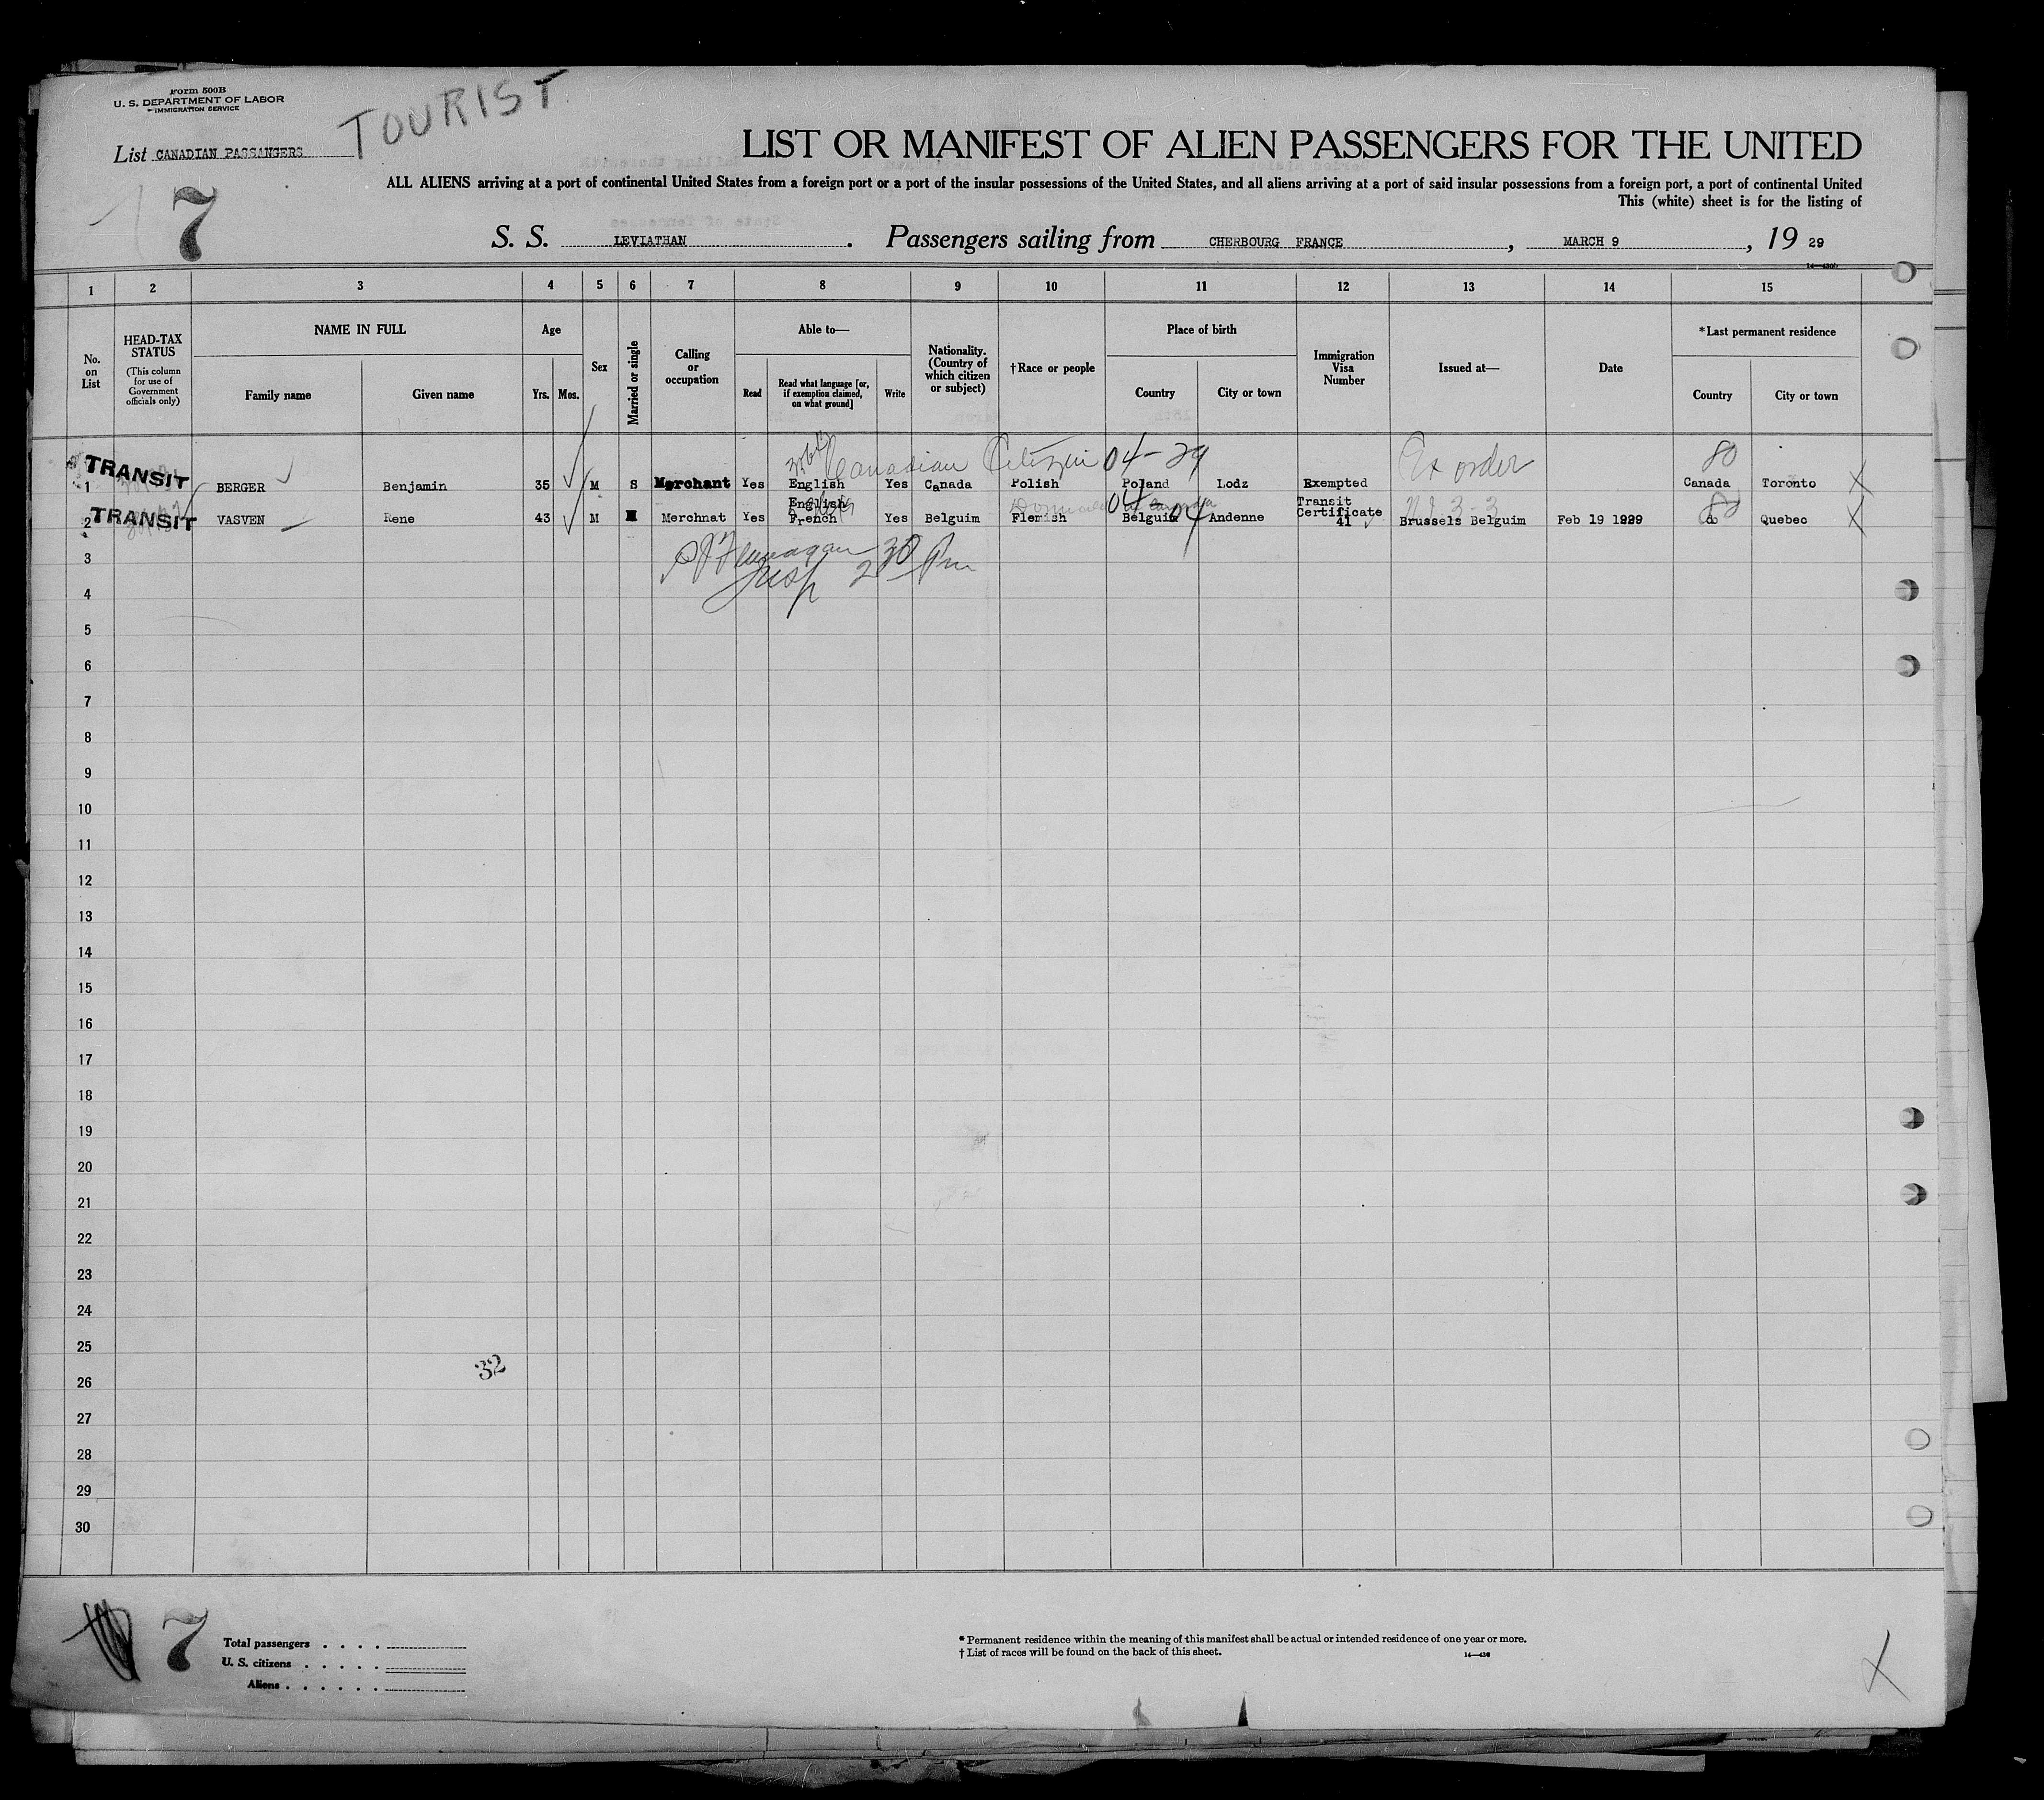 Form 500B
U. S. DEPARTMENT OF LABOR
IMMIGRATION SERVICE
TOURIST
List CANADIAN PASSANGERS
LIST OR MANIFEST OF ALIEN PASSENGERS FOR THE UNITED
ALL ALIENS arriving at a port of continental United States from a foreign port or a port of the insular possessions of the United States, and all aliens arriving at a port of said insular possessions from a foreign port, a port of continental United
This (white) sheet is for the listing of
7
S. S. LEVIATHAN. Passengers sailing from CHERBOURG FRANCE, MARCH 9, 19 29
1 2 3 4 5 6 7 8 9 10 11 12 13 14 15
No. on List
HEAD-TAX STATUS (This column for use of Government officials only)
NAME IN FULL
Family name Given name
Age
Yrs. Mos.
Sex
Married or single
Calling or occupation
Able to—
Read
Read what language [or, if exemption claimed, on what ground]
Write
Nationality. (Country of which citizen or subject)
†Race or people
Place of birth
Country City or town
Immigration Visa Number
Issued at—
Date
*Last permanent residence
Country City or town
Canadian Citizen 04-29 Ex order 80
TRANSIT
1 BERGER Benjamin 35 M S Merchant Yes English Yes Canada Polish Poland Lodz Exempted Canada Toronto
TRANSIT
2 VASVEN Rene 43 M M Merchnat Yes English French Yes Belguim Flemish Belguim Andenne Transit Certificate 41 Brussels Belguim Feb 19 1929 do Quebec
04 04 80
3
Insp 2 30 Pm
4
5
6
7
8
9
10
11
12
13
14
15
16
17
18
19
20
21
22
23
24
25
32
26
27
28
29
30
7
Total passengers . . . .
U. S. citizens . . . . .
Aliens . . . . . .
* Permanent residence within the meaning of this manifest shall be actual or intended residence of one year or more.
† List of races will be found on the back of this sheet.